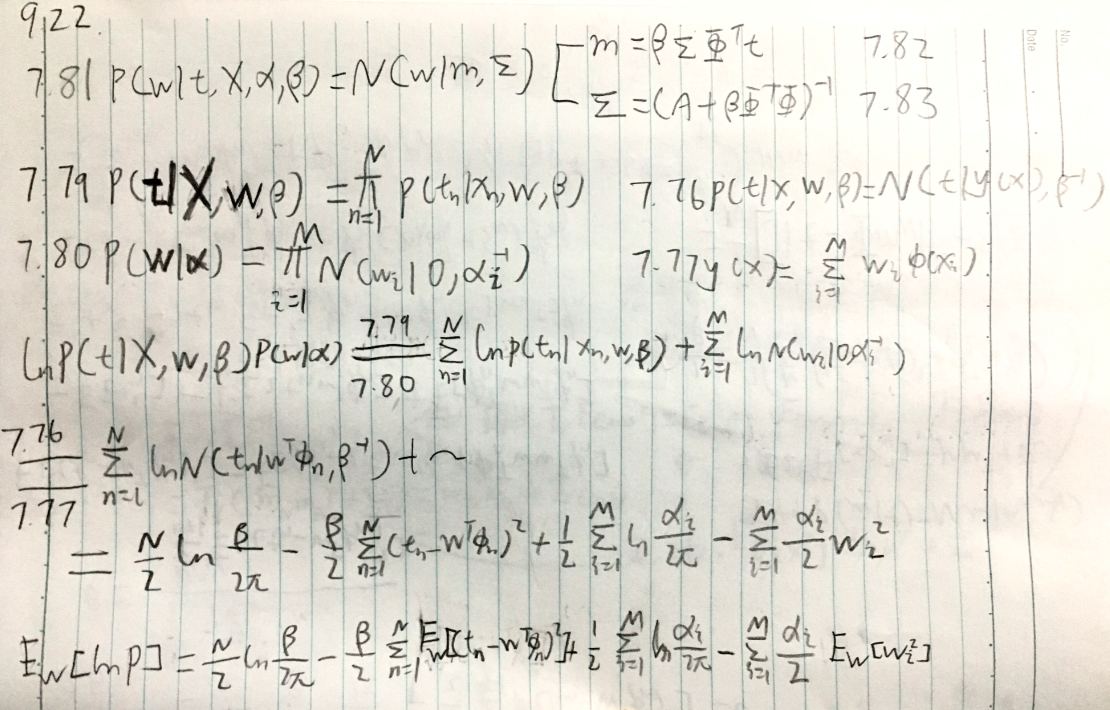 9.22
7.81 P(w|t, X, α, β) = N(w|m, Σ) [ m = βΣΦᵀt 7.82
Σ = (A + βΦᵀΦ)⁻¹ 7.83
7.79 P(t|X, w, β) = ∏_{n=1}^{N} p(tₙ|xₙ, w, β) 7.76 p(t|x, w, β) = N(t|y(x), β⁻¹)
7.80 P(w|α) = ∏_{i=1}^{M} N(wᵢ|0, αᵢ⁻¹) 7.77 y(x) = Σ_{i=1}^{M} wᵢ φ(xᵢ)
ln P(t|X, w, β)P(w|α) =(7.79, 7.80) Σ_{n=1}^{N} ln p(tₙ|xₙ, w, β) + Σ_{i=1}^{M} ln N(wᵢ|0 αᵢ⁻¹)
=(7.76, 7.77) Σ_{n=1}^{N} ln N(tₙ|wᵀφₙ, β⁻¹) + ~
= N/2 ln β/2π - β/2 Σ_{n=1}^{N} (tₙ - wᵀφₙ)² + 1/2 Σ_{i=1}^{M} ln αᵢ/2π - Σ_{i=1}^{M} αᵢ/2 wᵢ²
E_w[ln p] = N/2 ln β/2π - β/2 Σ_{n=1}^{N} E_w[(tₙ - wᵀφₙ)²] + 1/2 Σ_{i=1}^{M} ln αᵢ/2π - Σ_{i=1}^{M} αᵢ/2 E_w[wᵢ²]
No.
Date